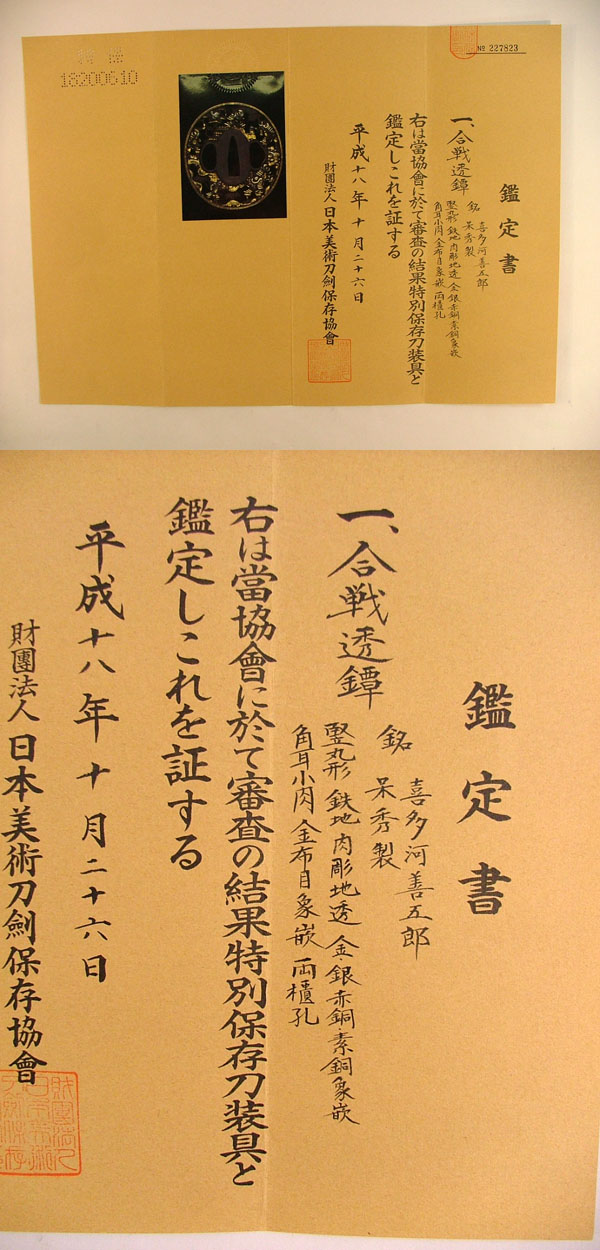 № 227823
18200610
鑑定書
一、合戦透鐔
銘 喜多河善五郎
呆秀製
竪丸形 鉄地 肉彫地透 金・銀・赤銅・素銅象嵌
角耳小肉 金布目象嵌 両櫃孔
右は當協會に於て審査の結果特別保存刀装具と
鑑定しこれを証する
平成十八年十月二十六日
財團法人日本美術刀劍保存協會
鑑定書
一、合戦透鐔
銘 喜多河善五郎
呆秀製
竪丸形 鉄地 肉彫地透 金・銀・赤銅・素銅象嵌
角耳小肉 金布目象嵌 両櫃孔
右は當協會に於て審査の結果特別保存刀装具と
鑑定しこれを証する
平成十八年十月二十六日
財團法人日本美術刀劍保存協會